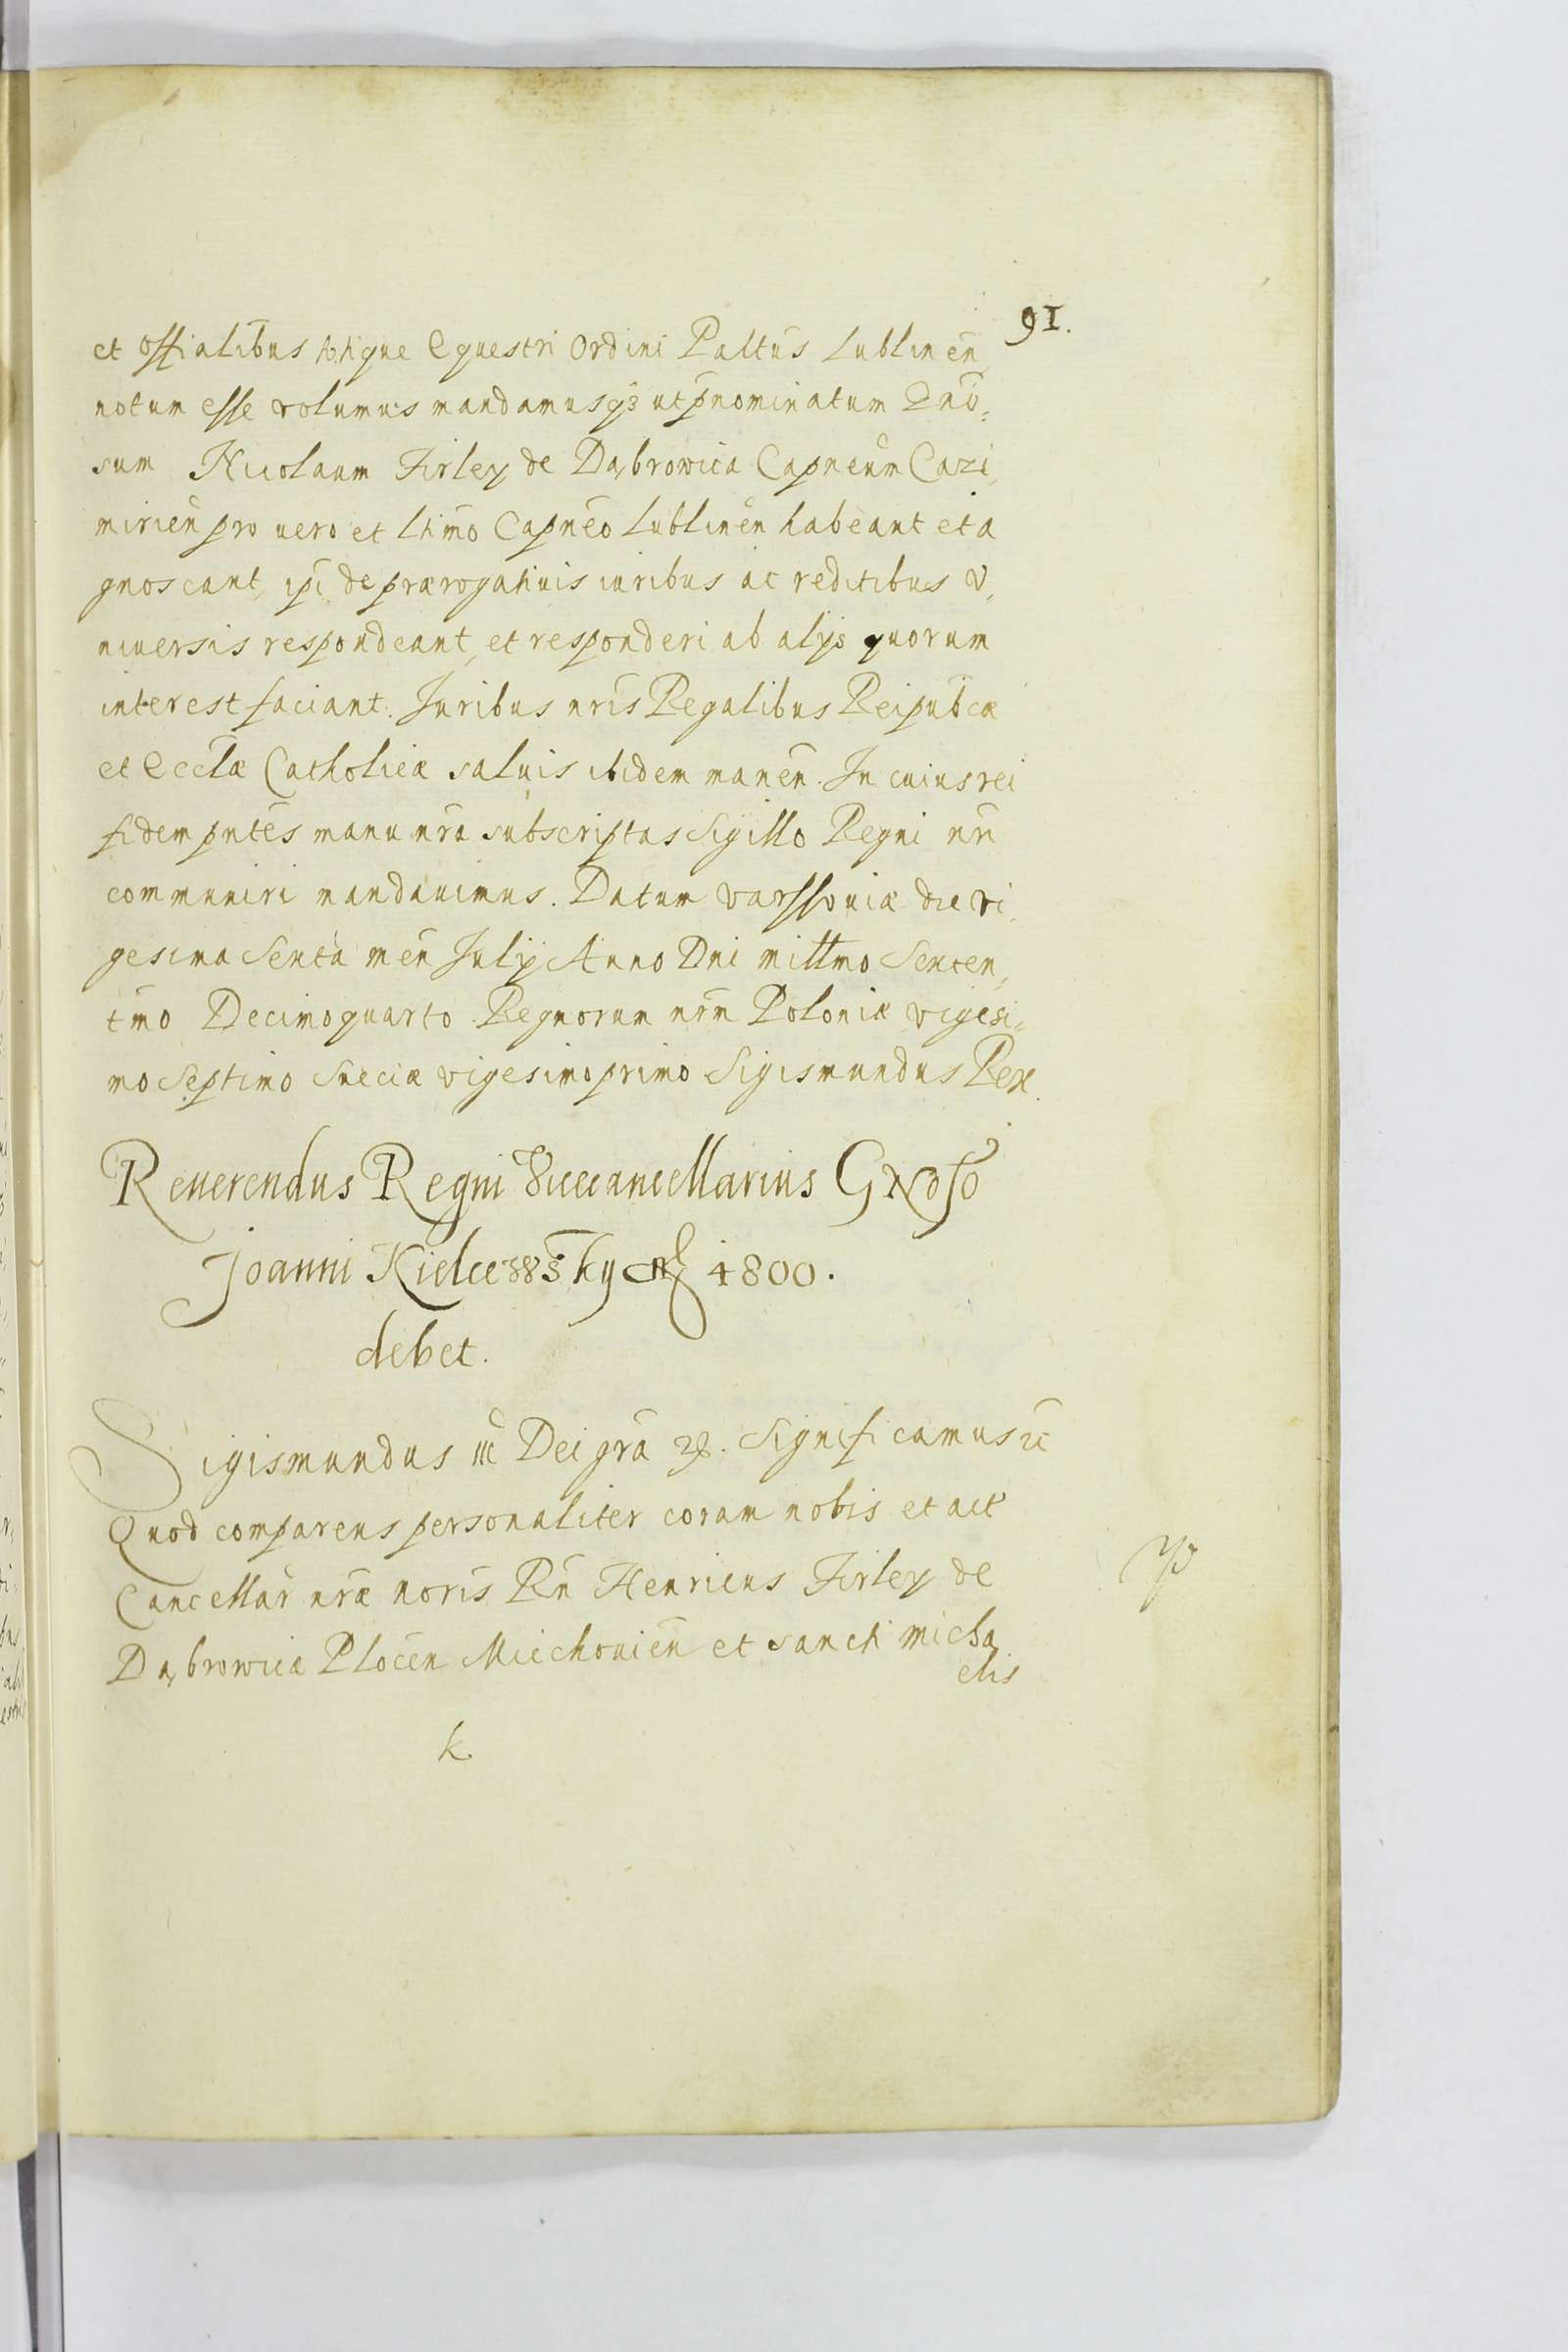 91.
et Offialibus totique Equestri Ordini Paltus Lublinen̄
notum esse volumus mandamusqȝ ut pn̄ominatum Gn̄o=
sum Nicolaum Firley de Dąbrowica Capneum̄ Cazi,
mirien̄ pro uero et lt̄imo Capn̄eo Lublinen̄ habeant et a
gnoscant, ip̄i de prærogatiuis iuribus ac reditibus v,
niuersis respondeant, et responderi ab alijs quorum
interest faciant. Juribus nr̄is Regalibus Reipub̄cæ
et Eccl̄æ Catholicæ saluis ibidem manen̄. In cuius rei
fidem pn̄tes manu nr̄a subscriptas Sigillo Regni nr̄i
communiri mandauimus. Datum Varssouiæ die vi,
gesima Sexta men̄ Julij Anno Dni mill̄mo Sexcen,
tm̄o Decimoquarto Regnorum nr̄m Poloniæ vigesi=
mo Septimo Sueciæ vigesimoprimo Sigismundus Rex.
Reuerendus Regni Vicecancellarius Gn̄oso
Joanni Kielczewsky 1800.
debet.
Sigismundus III Dei gr̄a Significamus
Quod comparens personaliter coram nobis et act
Cancellar̄ nr̄æ noris Rn̄ Henricus Firley de
Dąbrowica Plocen̄ Miechouien̄ et sancti Micha
elis
k.